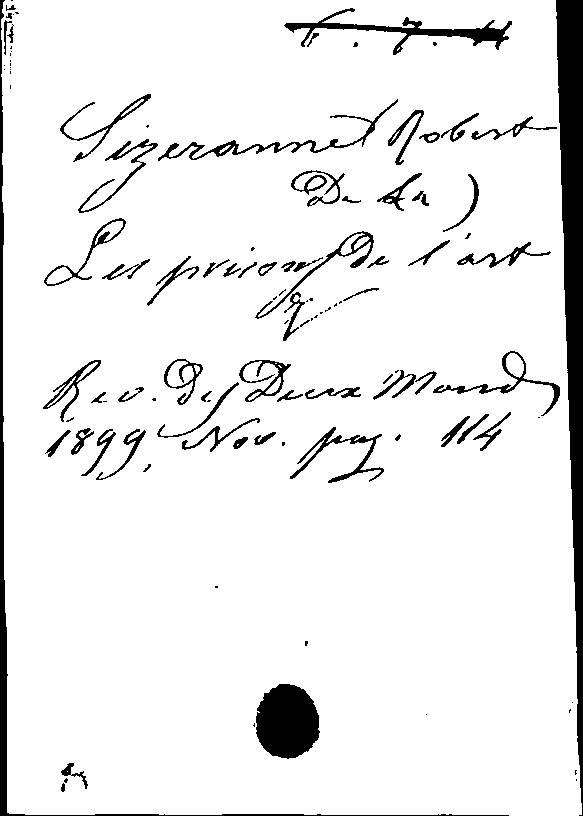 6. 7. 11
Sizeranne (Robert
De La)
Les prisons de l'art
Rev. des Deux Mond
1899, Nov. pag. 114